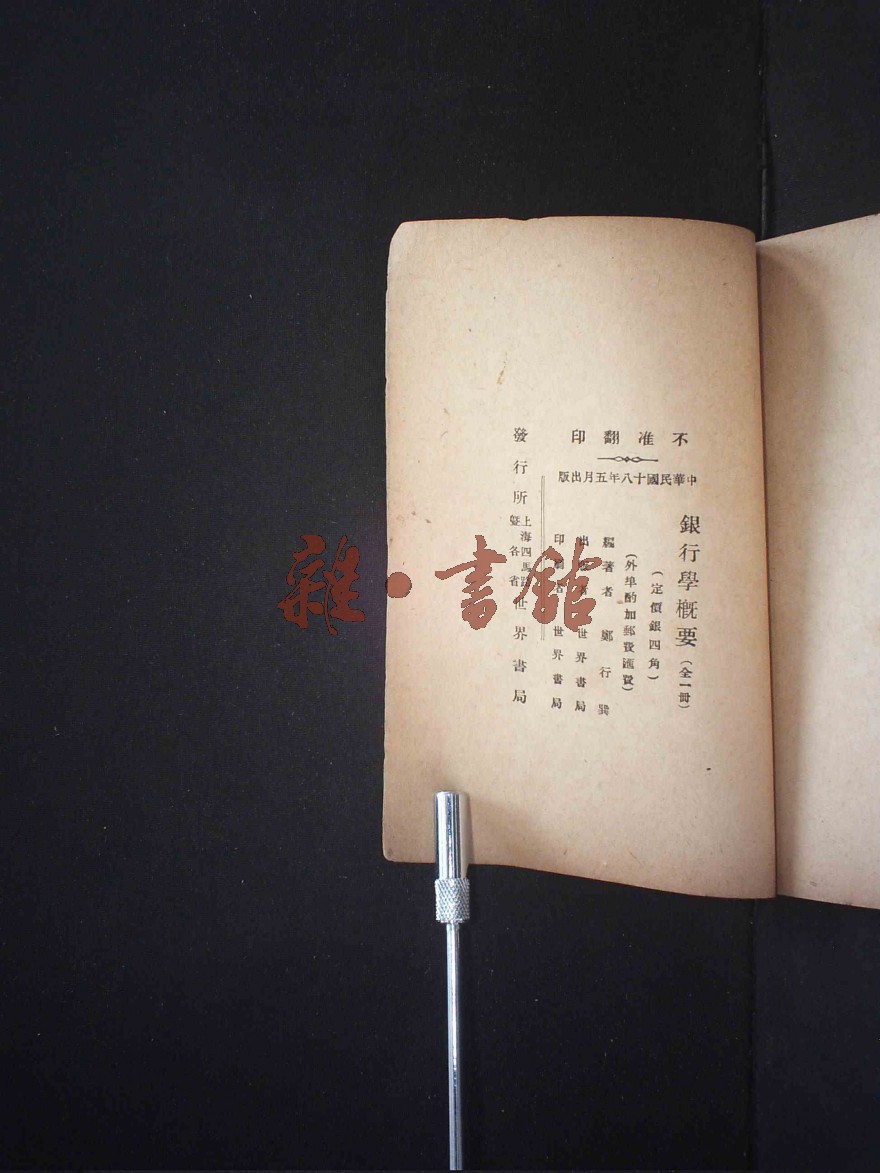 不准翻印
中華民國十八年五月出版
銀行學概要(全一冊)
(定價銀四角)
(外埠酌加郵費匯費)
編著者 鄭行巽
出版者 世界書局
印刷者 世界書局
發行所 上海四馬路暨各省 世界書局
雜·書館